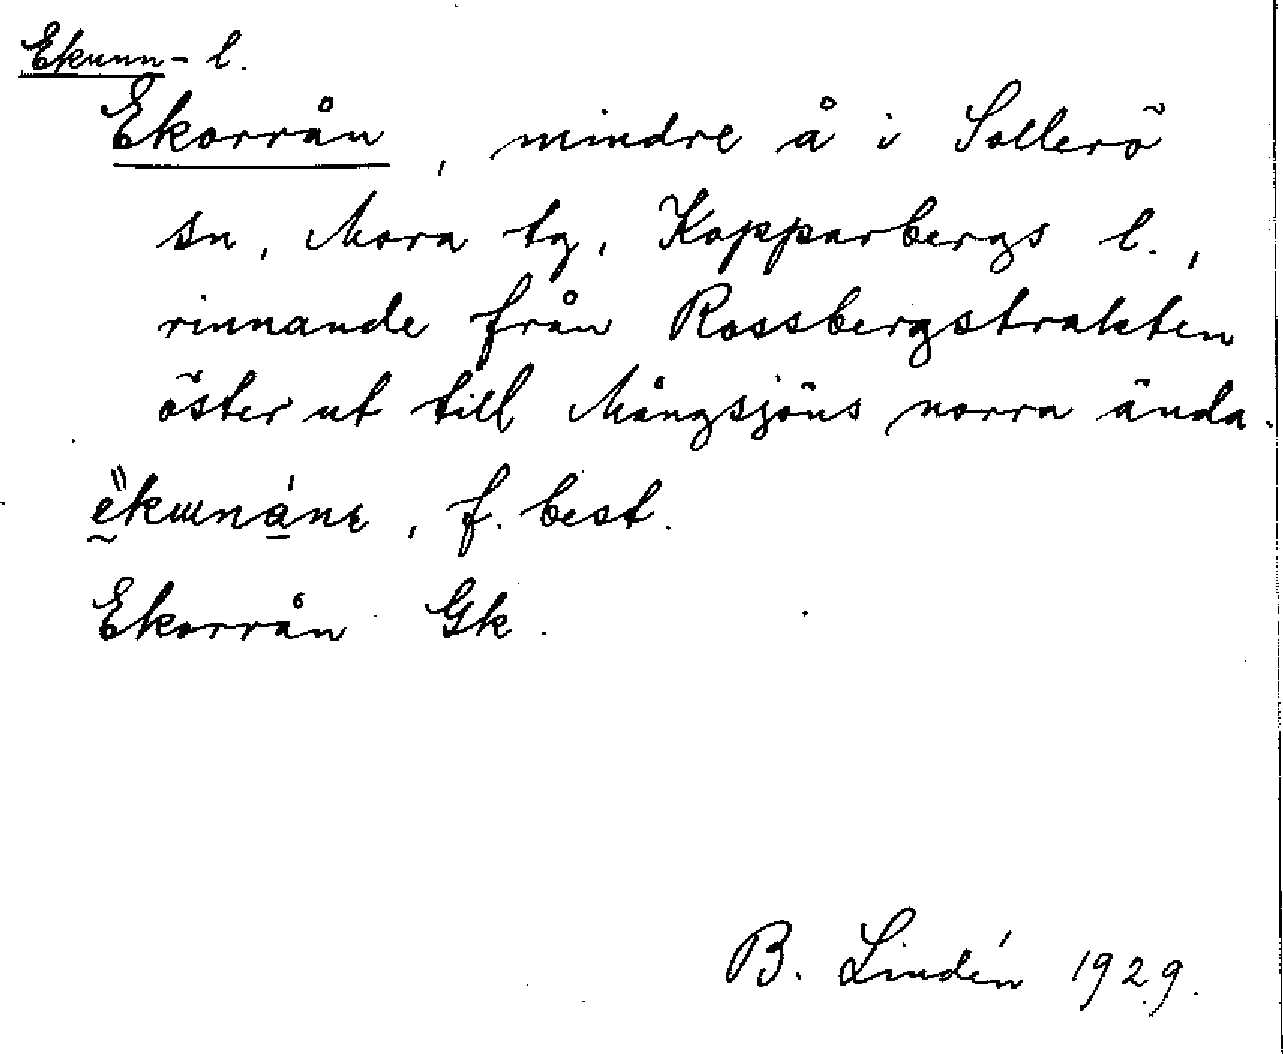 Ekunn- l.
Ekorrån, mindre å i Sollerö
sn, Mora tg, Kopparbergs l.,
rinnande från Rossbergstrakten
öster ut till Mångsjöns norra ända.
f. best.
Ekorrån Gk.
B. Lindén 1929.